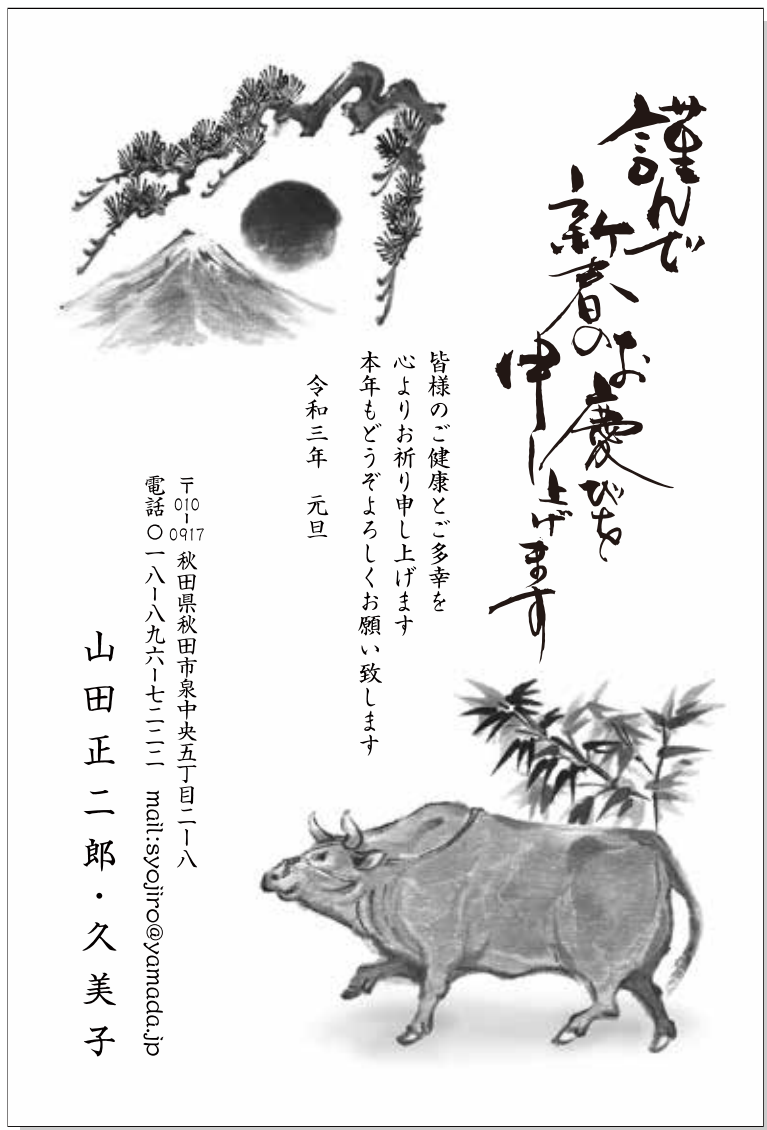 謹んで
新春の
お慶びを
申し上げます
皆様のご健康とご多幸を
心よりお祈り申し上げます
本年もどうぞよろしくお願い致します
令和三年　元旦
〒010-0917 秋田県秋田市泉中央五丁目二ー八
電話〇一八ー八九六ー七二二二　mail:syojiro@yamada.jp
山田正二郎・久美子